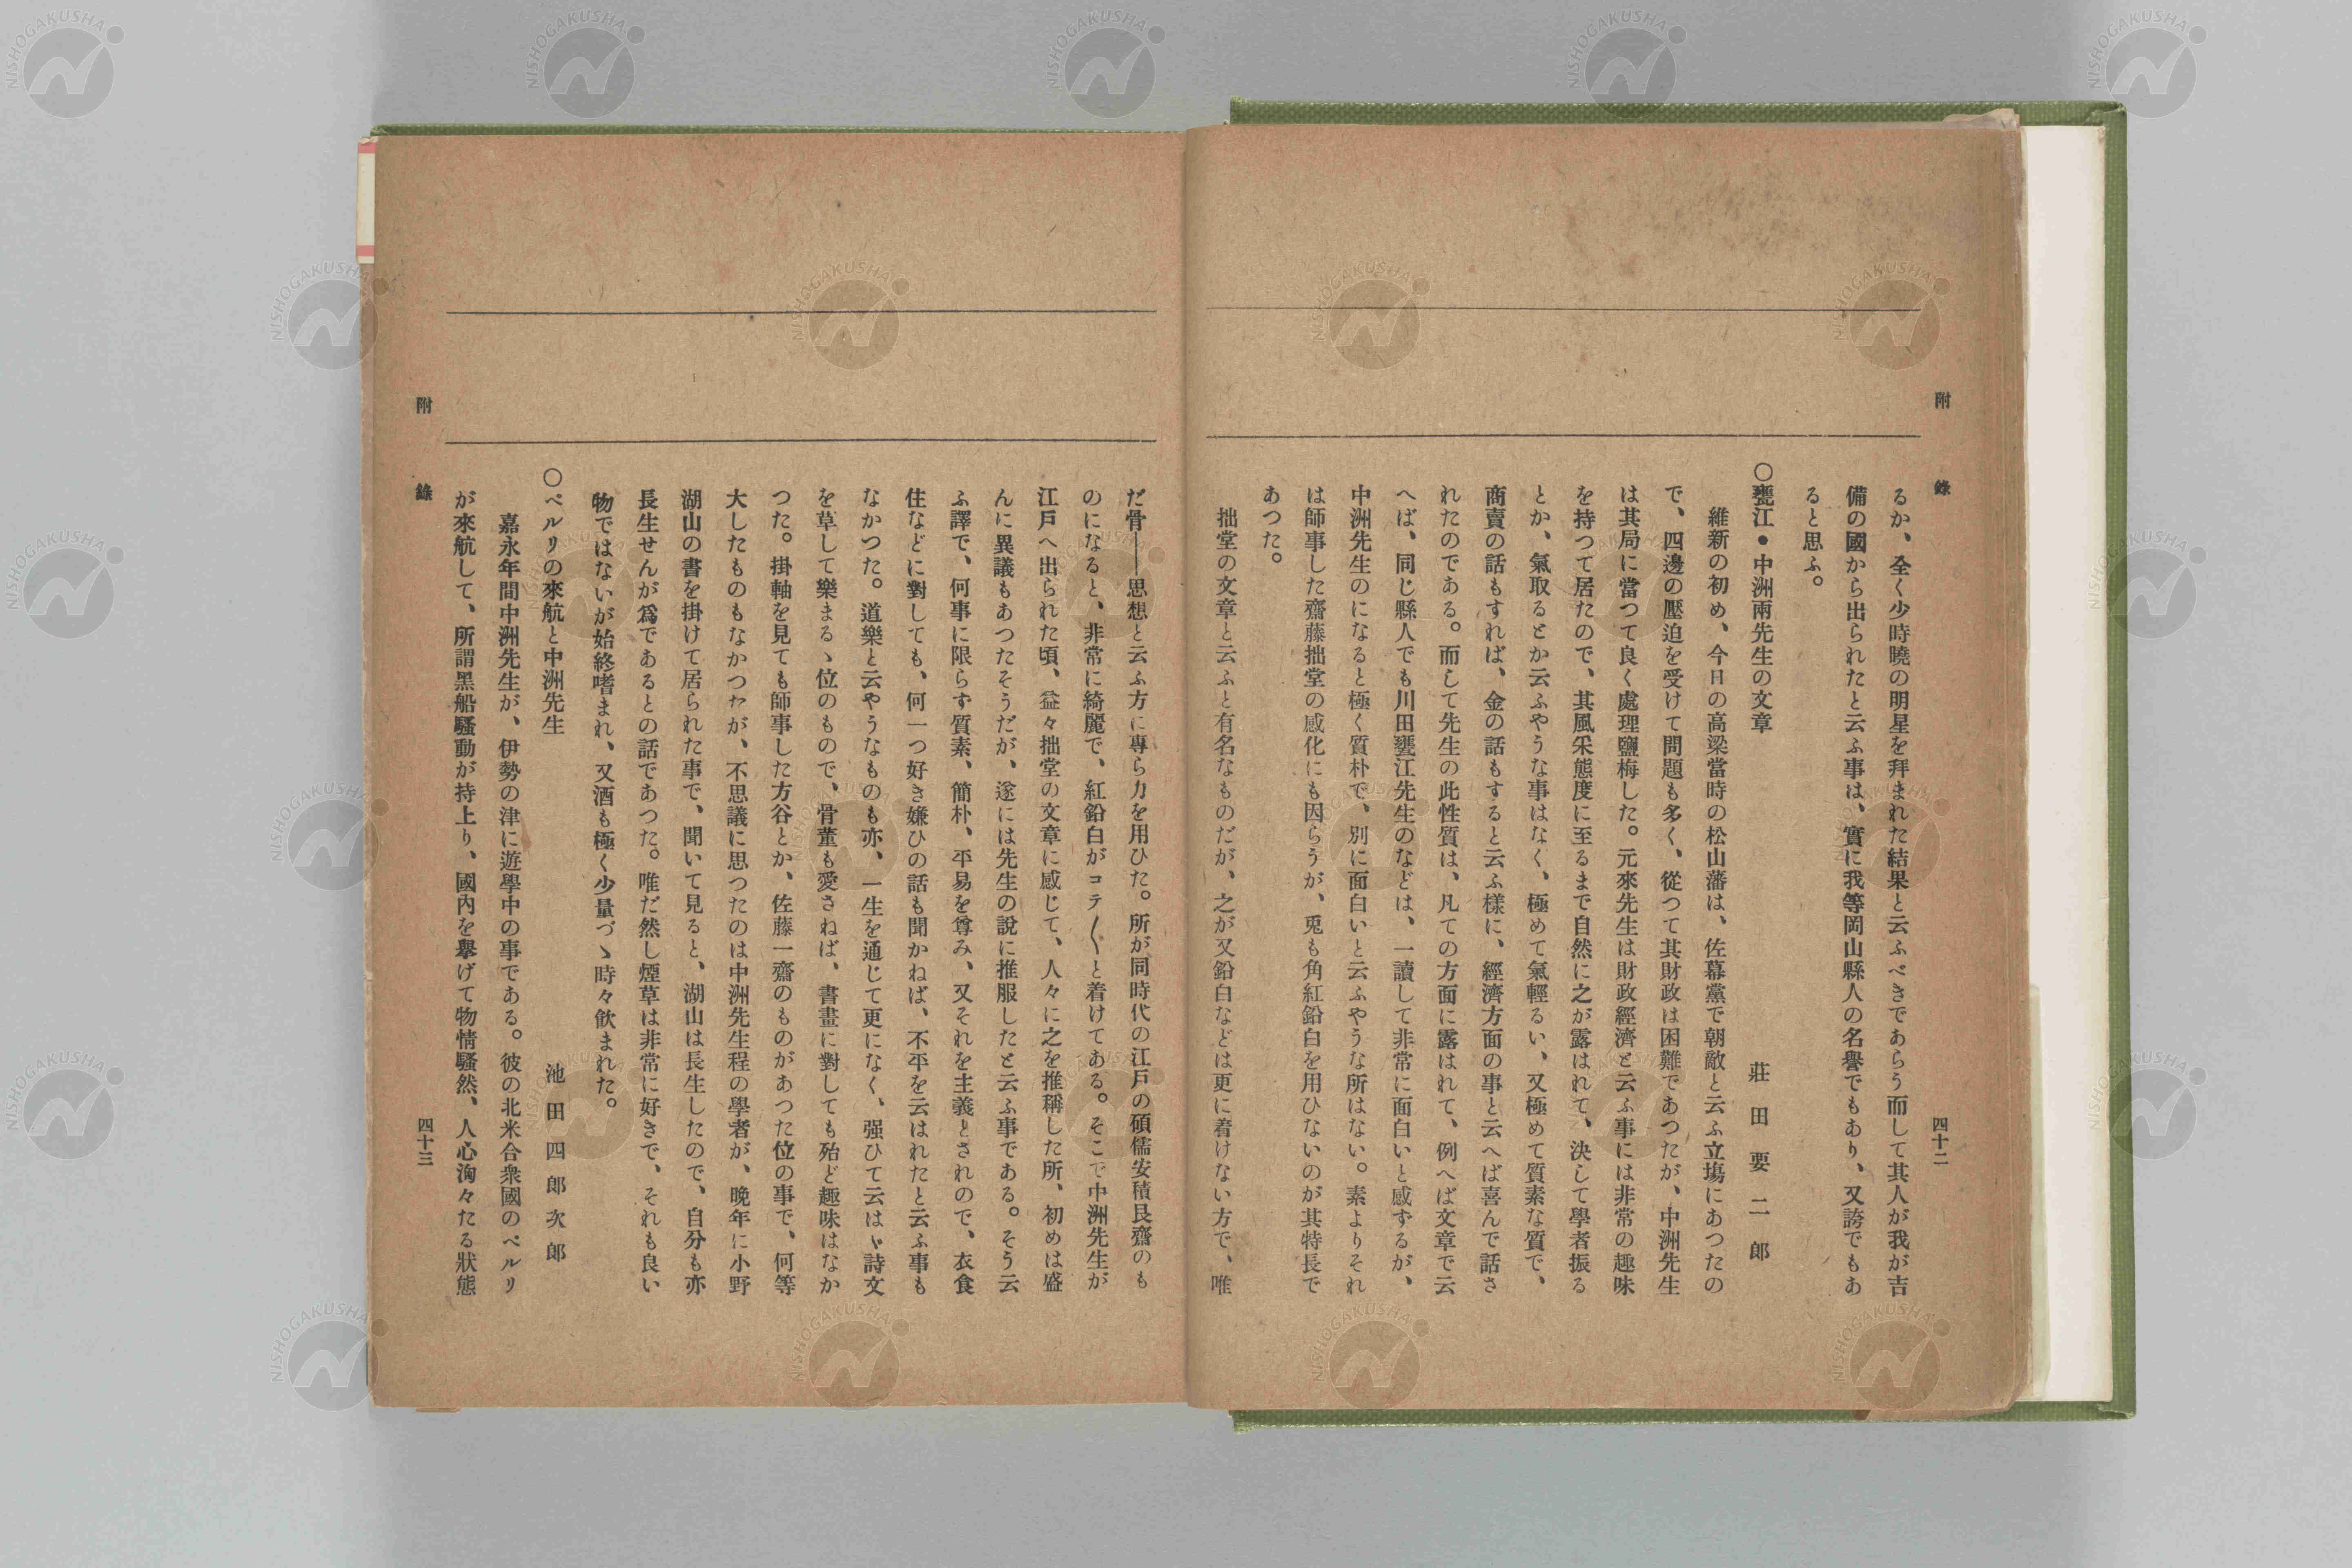 附錄
四十二
るか、全く少時曉の明星を拜まれた結果と云ふべきであらう而して其人が我が吉
備の國から出られたと云ふ事は、實に我等岡山縣人の名譽でもあり、又誇でもあ
ると思ふ。
〇甕江・中洲兩先生の文章
莊田要二郎
維新の初め、今日の高梁當時の松山藩は、佐幕黨で朝敵と云ふ立塲にあつたの
で、四邊の壓迫を受けて問題も多く、從つて其財政は困難であつたが、中洲先生
は其局に當つて良く處理鹽梅した。元來先生は財政經濟と云ふ事には非常の趣味
を持つて居たので、其風采態度に至るまで自然に之が露はれて、決して學者振る
とか、氣取るとか云ふやうな事はなく、極めて氣輕るい、又極めて質素な質で、
商賣の話もすれば、金の話もすると云ふ樣に、經濟方面の事と云へば喜んで話さ
れたのである。而して先生の此性質は、凡ての方面に露はれて、例へば文章で云
へば、同じ縣人でも川田甕江先生のなどは、一讀して非常に面白いと感ずるが、
中洲先生のになると極く質朴で、別に面白いと云ふやうな所はない。素よりそれ
は師事した齋藤拙堂の感化にも因らうが、兎も角紅鉛白を用ひないのが其特長で
あつた。
拙堂の文章と云ふと有名なものだが、之が又鉛白などは更に着けない方で、唯
だ骨――思想と云ふ方に專ら力を用ひた。所が同時代の江戸の碩儒安積艮齋のも
のになると、非常に綺麗で、紅鉛白がコテ〱と着けてある。そこで中洲先生が
江戸へ出られた頃、益々拙堂の文章に感じて、人々に之を推稱した所、初めは盛
んに異議もあつたそうだが、遂には先生の說に推服したと云ふ事である。そう云
ふ譯で、何事に限らず質素、簡朴、平易を尊み、又それを主義とされので、衣食
住などに對しても、何一つ好き嫌ひの話も聞かねば、不平を云はれたと云ふ事も
なかつた。道樂と云やうなものも亦、一生を通じて更になく、强ひて云はゞ詩文
を草して樂まるゝ位のもので、骨董も愛さねば、書畫に對しても殆ど趣味はなか
つた。掛軸を見ても師事した方谷とか、佐藤一齋のものがあつた位の事で、何等
大したものもなかつたが、不思議に思つたのは中洲先生程の學者が、晚年に小野
湖山の書を掛けて居られた事で、聞いて見ると、湖山は長生したので、自分も亦
長生せんが爲であるとの話であつた。唯だ然し煙草は非常に好きで、それも良い
物ではないが始終嗜まれ、又酒も極く少量づゝ時々飮まれた。
〇ペルリの來航と中洲先生
池田四郎次郎
嘉永年間中洲先生が、伊勢の津に遊學中の事である。彼の北米合衆國のペルリ
が來航して、所謂黑船騷動が持上り、國內を擧げて物情騷然、人心洶々たる狀態
附錄
四十三
NISHOGAKUSHA